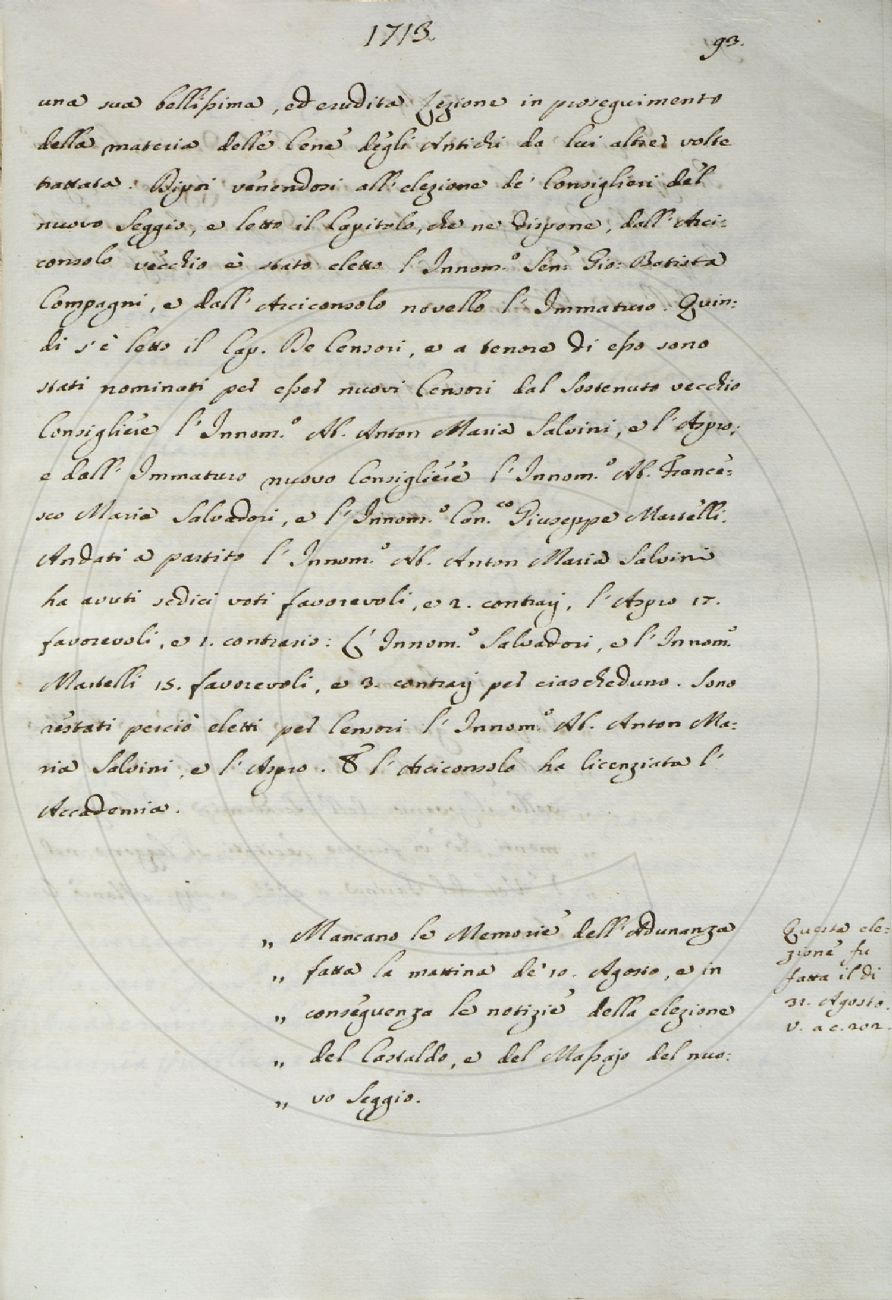 1713.
93.
una sua bellissima, ed erudita Lezione in proseguimento
della materia delle Cene degli Antichi da lui altre volte
trattata. Dipoi venendosi all'elezione de' Consiglieri del
nuovo Seggio, e letto il Capitolo, che ne dispone, dall'Arci:
consolo vecchio è stato eletto l'Innom.º Sen.r Gio: Batista
Compagni, e dall'Arciconsolo novello l'Immaturo. Quin:
di s'è letto il Cap. De Censori, e a tenore di esso sono
stati nominati per esser nuovi Censori dal Sostenuto vecchio
Consigliere l'Innom.º Ab. Anton Maria Salvini, e l'Aspro;
e dall'Immaturo nuovo Consigliere l'Innom.º Ab. France:
sco Maria Salvadori, e l'Innom.º Con.co Giuseppe Martelli.
Andati a partito l'Innom.º Ab. Anton Maria Salvini
ha avuti sedici voti favorevoli, e 2. contrarj, l'Aspro 17.
favorevoli, e 1. contrario: L'Innom.º Salvadori, e l'Innom.º
Martelli 15. favorevoli, e 3. contrarj per ciascheduno. Sono
restati perciò eletti per Censori l'Innom.º Ab. Anton Ma:
ria Salvini, e l'Aspro. E l'Arciconsolo ha licenziata l'
Accademia.
„ Mancano le Memorie dell'Adunanza
„ fatta la mattina de' 10. Agosto, e in
„ conseguenza le notizie della elezione
„ del Castaldo, e del Massajo del nuo:
„ vo Seggio.
Questa ele:
zione fu
fatta il dì
31. Agosto.
V. a c. 202.